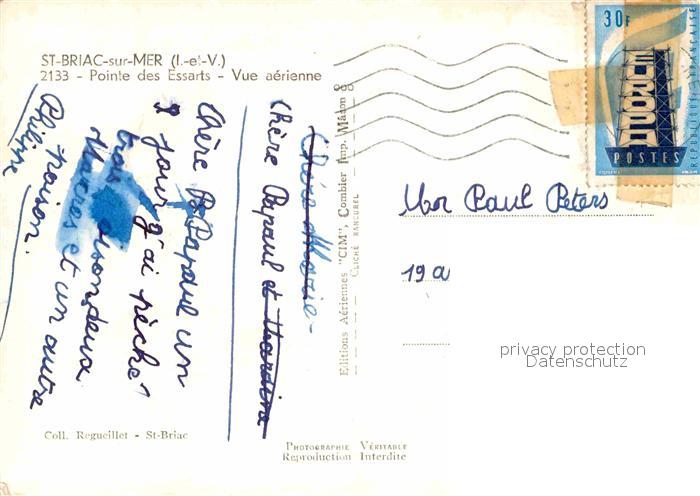 ST-BRIAC-sur-MER (I.-et-V.)
2133 - Pointe des Essarts - Vue aérienne
Chère Marie-
Chère Papaul et Mardine
Chère Papaul un
jour j'ai pêché
trois
et un autre
poison.
Philippe
Coll. Regueillet - St-Briac
Editions Aériennes "CIM", Combier Imp. Mâcon
CLICHÉ RANCUREL
PHOTOGRAPHIE VÉRITABLE
Reproduction Interdite
30F
EUROPA
POSTES
RÉPUBLIQUE FRANÇAISE
Mor Paul Peters
19 a
privacy protection
Datenschutz